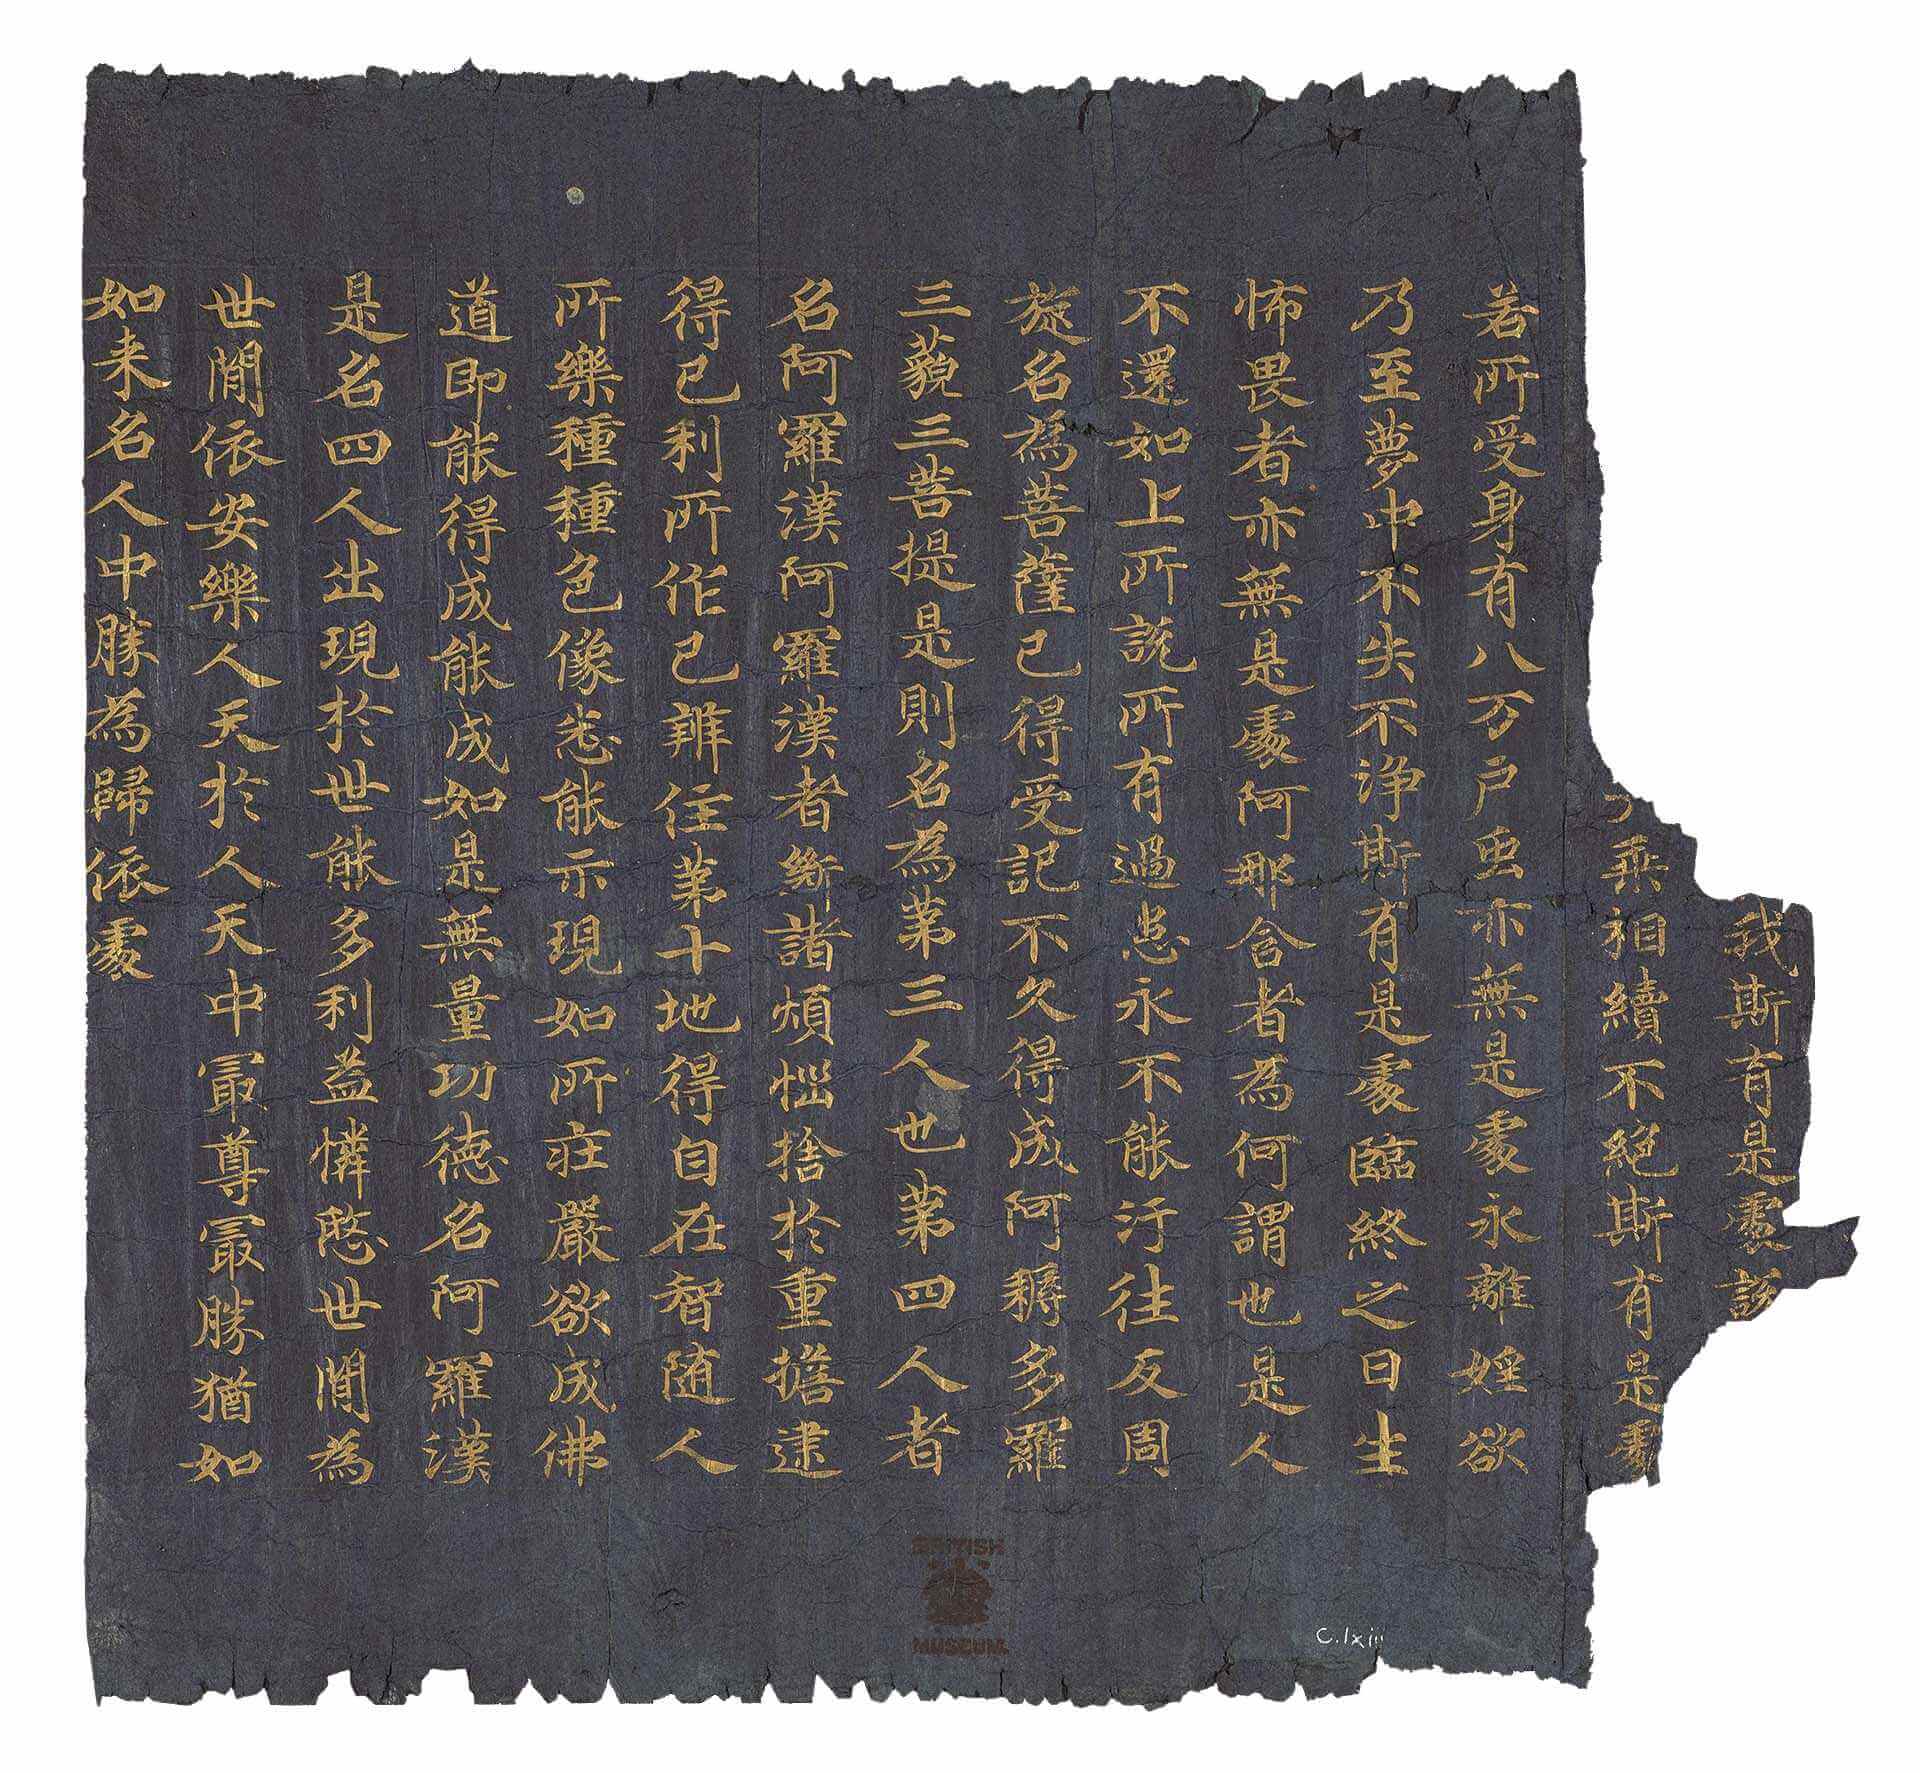 我斯有是處說
乘相續不絕斯有是處
若所受身有八万戶虫亦無是處永離婬欲
乃至夢中不失不淨斯有是處臨終之日生
怖畏者亦無是處阿那含者為何謂也是人
不還如上所說所有過患永不能汙往反周
旋名為菩薩已得受記不久得成阿耨多羅
三藐三菩提是則名為苐三人也苐四人者
名阿羅漢阿羅漢者斷諸煩惱捨於重擔逮
得已利所作已辦住苐十地得自在智随人
所樂種種色像悉能示現如所莊嚴欲成佛
道即能得成能成如是無量功德名阿羅漢
是名四人出現於世能多利益憐愍世閒為
世閒依安樂人天於人天中冣尊冣勝猶如
如来名人中勝為歸依處
BRITISH
MUSEUM
C.lxiii